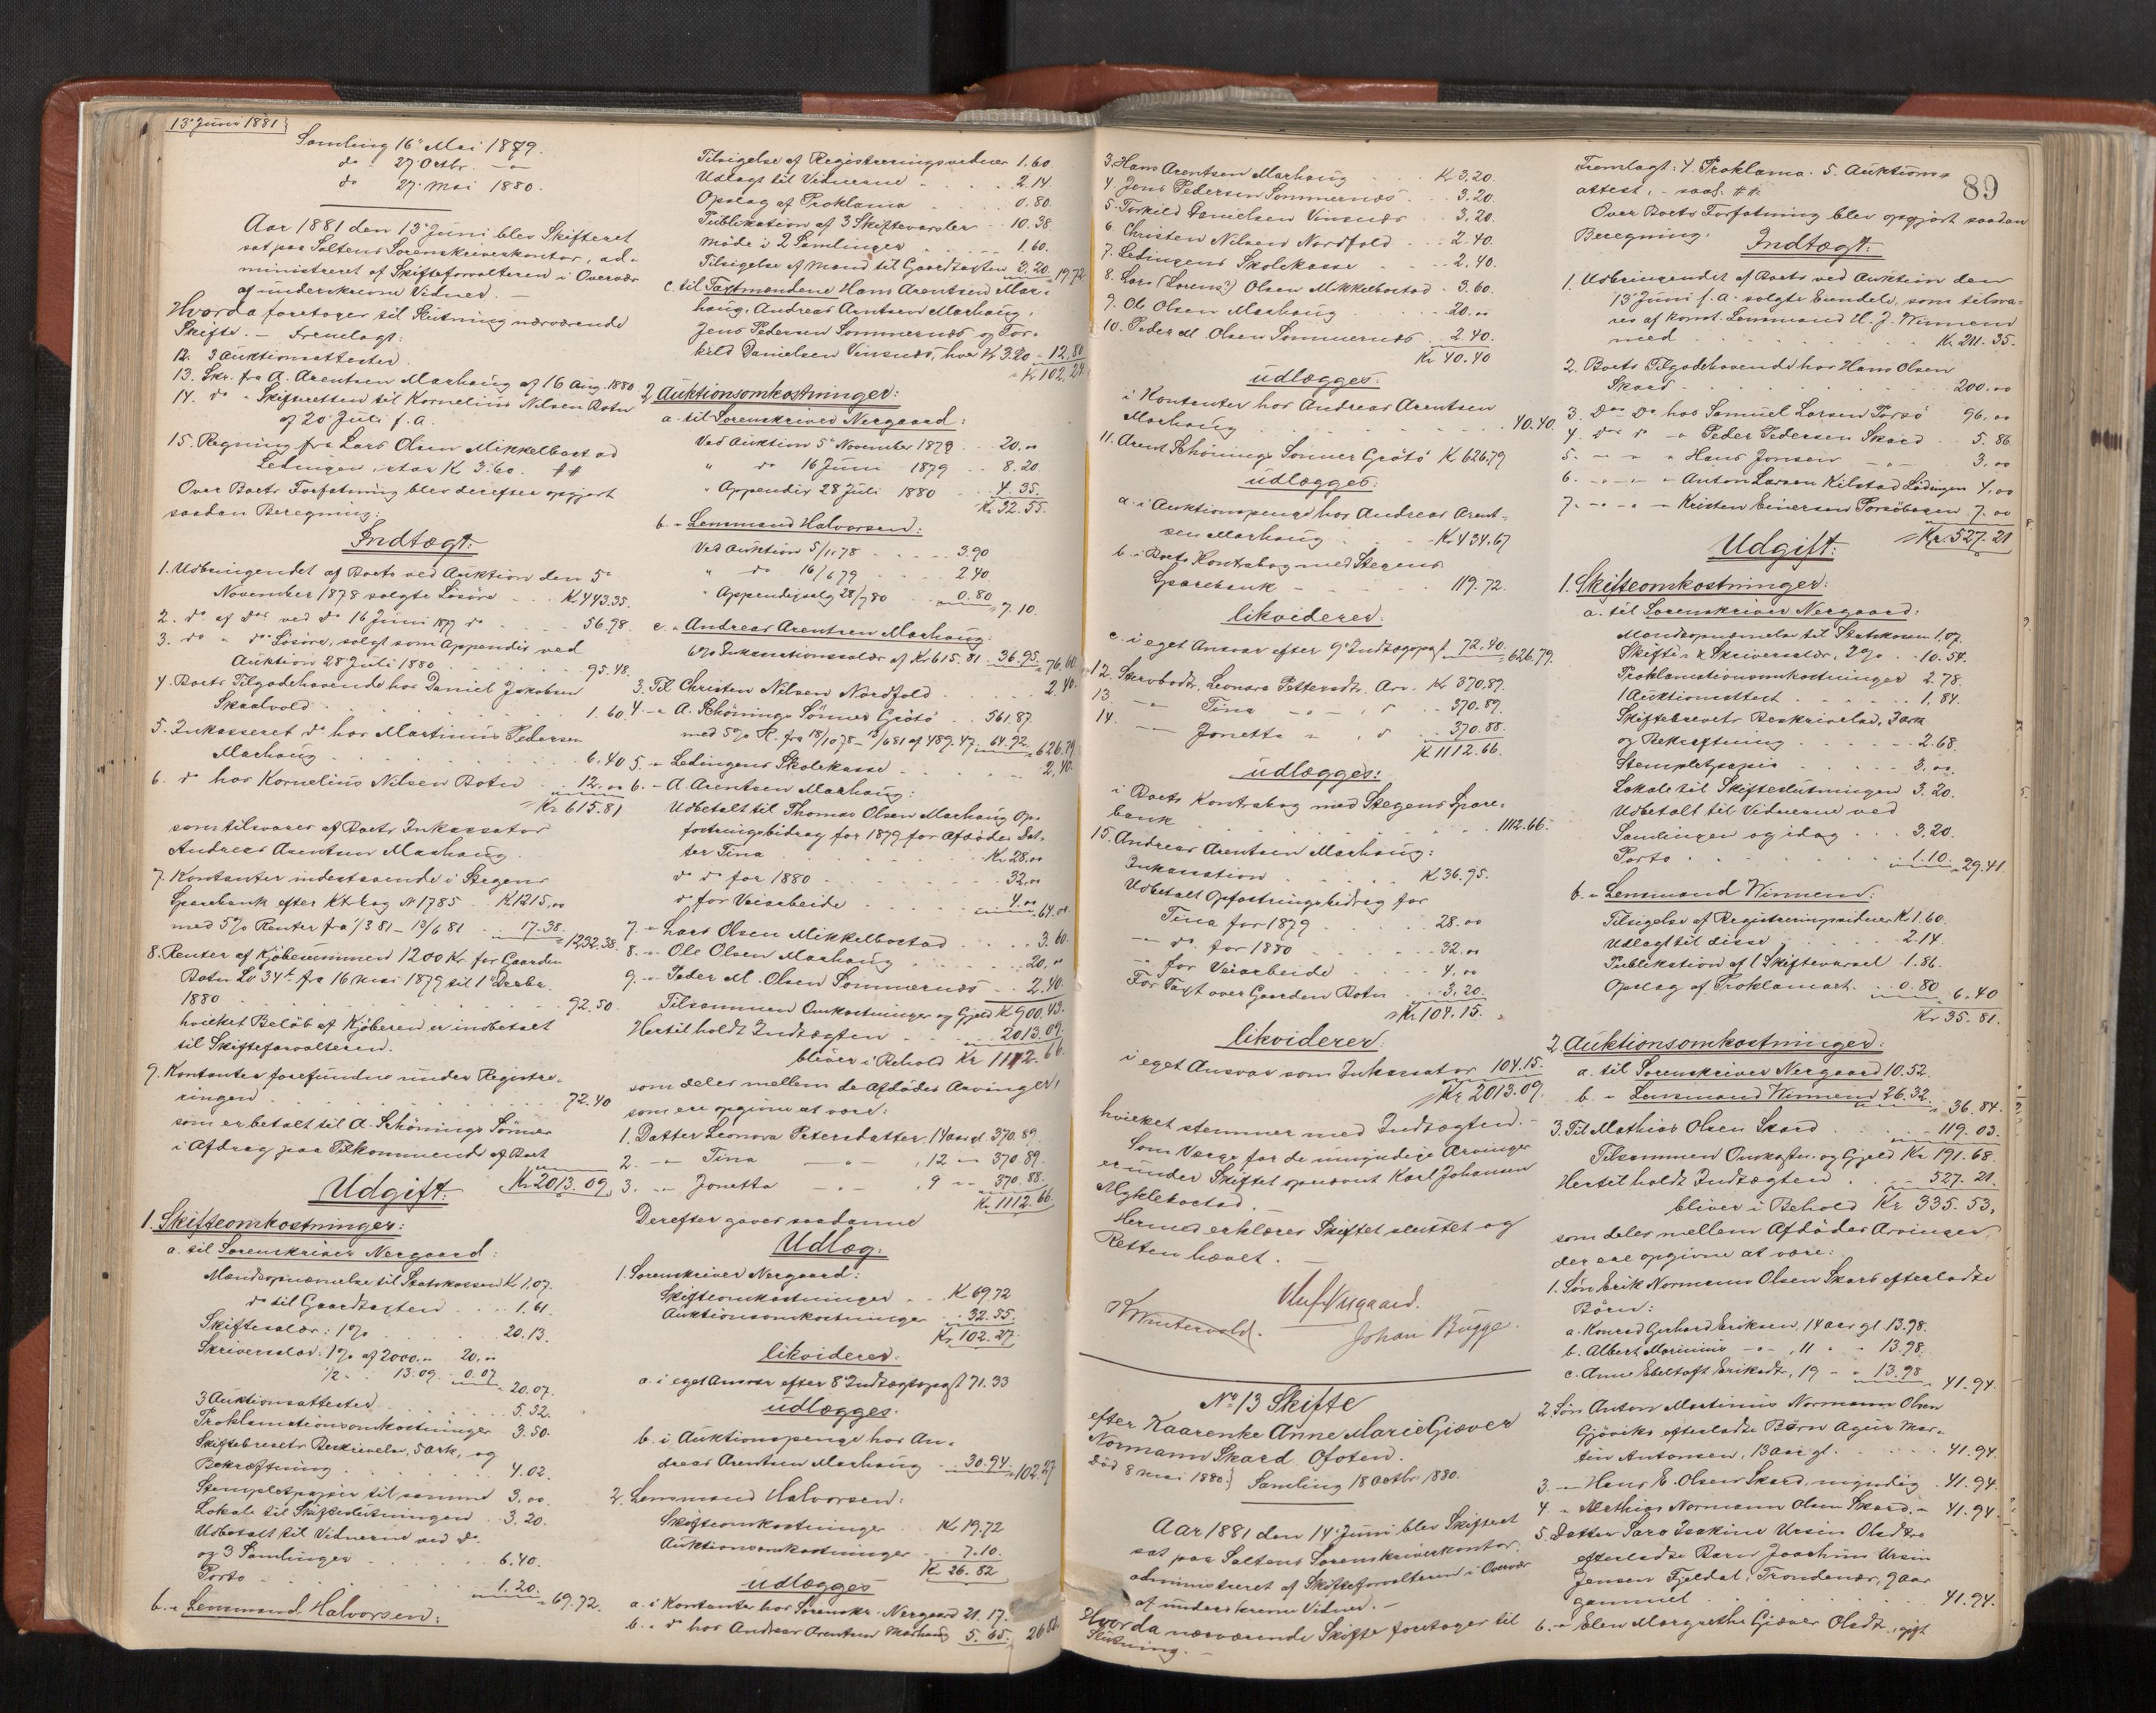 13 Juni 1881
Samling 16 Mai 1879.
do 27 Octbr. -"-
do 27 Mai 1880.
Aar 1881 den 13 Juni blev Skifteret
sat paa Saltens Sorenskriverkontor, ad-
ministreret af Skifteforvalteren i Overvær
af underskrevne Vidner. -
Hvorda foretoges til Slutning nærværende
Skifte. - Fremlagt:
12. 3 Auktionsattester.
13. Skr. fra A. Arentsen Marhaug af 16 Aug. 1880.
14. do " Skifteretten til Kornelius Nilsen Botn
af 20 Juli f. A.
15. Regning fra Lars Olsen Mikkelbostad
Ledingen, stor K 3.60. ##
Over Boets Forfatning blev derefter opgjort
saadan Beregning:
Indtægt:
1. Udbringendet af Boets ved Auktion den 5
November 1878 solgte Løsøre . . K 443.35.
2. do af Dos ved do 16 Juni 1879 do . . 56.98.
3. do " do Løsøre, solgt som Appendix ved
Auktion 28 Juli 1880 . . . . 95.48.
4. Boets Tilgodehavende hos Daniel Jakobsen
Skaalvold . . . . 1.60.
5. Inkasseret do hos Martinus Pedersen
Marhaug . . . . 6.40
6. do hos Kornelius Nilsen Botn . . 12.00
Kr 615.81
som tilsvares af Boets Inkassator
Andreas Arentsen Marhaug.
7. Kontanter indestaaende i Stegens
Sparebank efter Ktrbog No 1785 . K 1215.00
med 5% Renter fra 1/3 81 - 13/6 81 . . 17.38. 1232.38.
8. Renter af Kjøbesummen 1200 Kr. for Gaarden
Botn Lb 34b fra 16 Mai 1879 til 1 Decbr.
1880 . . . . 92.50.
hvilket Beløb af Kjøberen er indbetalt
til Skifteforvalteren.
9. Kontanter forefundne under Registre-
ringen . . . . 72.40
som er betalt til A. Schønings Sønner
i Afdrag paa Tilkommende af Boet
Kr 2013.09.
Udgift:
1. Skifteomkostninger:
a. til Sorenskriver Nergaard:
Mandsopnævnelse til Statskassen K 1.07.
do til Gaardtaxten . . 1.61.
Skiftesalær: 1% . . . . 20.13.
Skriversalær: 1% af 2000.00 20.00
1/2 - 13.09. 0.07 20.07.
3 Auktionsattester . . . . 5.52.
Proklamationsomkostninger 3.50.
Skiftebrevets Beskrivelse, 5 ark, og
Bekræftning . . . . 4.02.
Stempletpapir til samme 3.00.
Lokale til Skifteslutningen . 3.20.
Udbetalt til Vidnerne ved do.
og 3 Samlinger . . . 6.40.
Porto . . . . 1.20. 69.72.
b. " Lensmand Halvorsen:
Tilsigelse af Registreringsvidner 1.60.
Udlagt til Vidnerne . . . . 2.14.
Opslag af Proklama . . . 0.80.
Publikation af 3 Skiftevarsler . . 10.38.
Møde i 2 Samlinger . . . 1.60.
Tilsigelse af Mænd til Gaardtaxten 3.20. 19.72.
c. til Taxtmændene Hans Arentsen Mar-
haug, Andreas Arentsen Marhaug,
Jens Pedersen Sommernæs og Tor-
kild Danielsen Vinsnæs, hver K 3.20 - 12.80
Kr 102.24
2. Auktionsomkostninger:
a. til Sorenskriver Nergaard:
Ved Auktion 5 November 1878 . . 20.00
" do 16 Juni 1879 . . 8.20.
" Appendix 28 Juli 1880 . . 4.35.
Kr 32.55.
b. " Lensmand Halvorsen:
Ved Auktion 5/11 78 . . . . 3.90
" do 16/6 79 . . . . 2.40.
" Appendixsalg 28/7 80 . . 0.80 7.10.
c. " Andreas Arentsen Marhaug:
6% Inkassationssalær af Kr 615.81 . 36.95. 76.60
3. Til Christen Nilsen Nordfold . . . . 2.40.
4. -"- A. Schønings Sønner Grøtø . . 561.87.
med 5% R. fra 18/10 78 - 13/6 81 af 489.47. 64.92. 626.79.
5. " Ledingens Skolekasse . . . . 2.40.
6. - A. Arentsen Marhaug:
Udbetalt til Thomas Olsen Marhaug Op-
fostringsbidrag for 1879 for Afdødes Dat-
ter Tina . . . . Kr 28.00
do do for 1880 . . . . 32.00
do for Veiarbeide . . . 4.00 64.00.
7. " Lars Olsen Mikkelbostad . . . . 3.60.
8. " Ole Olsen Marhaug . . . . 20.00
9. " Peder M. Olsen Sommernæs . . 2.40.
Tilsammen Omkostninger og Gjeld K 900.43.
Hertil holdt Indtægten . . 2013.09.
bliver i Behold Kr 1112.66.
som deles mellem de Afdødes Arvinger,
som ere opgivne at være:
1. Datter Leonora Petersdatter, 14 aar gl. 370.89.
2. -"- Tina -"- , 12 -"- 370.89.
3. -"- Jonetta -"- , 9 -"- 370.88.
Kr 1112.66.
Derefter gaves saadanne
Udlæg:
1. Sorenskriver Nergaard:
Skifteomkostninger . . K 69.72
Auktionsomkostninger . . 32.55.
Kr. 102.27.
likviderer:
a. i eget Ansvar efter 8 Indtægtspost 71.33
udlægges:
b. i Auktionspenge hos An-
dreas Arentsen Marhaug . . 30.94. 102.27
2. Lensmand Halvorsen:
Skifteomkostninger . . Kr 19.72
Auktionsomkostninger . . 7.10.
K 26.82
udlægges
a. i Kontanter hos Sorenskr. Nergaard 21.17.
b. " do hos Andreas Arentsen Marhaug 5.65. 26.82.
3. Hans Arentsen Marhaug . . . Kr 3.20.
4. Jens Pedersen Sommernæs . . . 3.20.
5. Torkild Danielsen Vinsnæs . . 3.20.
6. Christen Nilsen Nordfold . . . 2.40.
7. Ledingens Skolekasse . . . 2.40.
8. Lars (Lorens?) Olsen Mikkelbostad - 3.60.
9. Ole Olsen Marhaug . . . . 20.00
10. Peder M. Olsen Sommernæs . . 2.40.
Kr 40.40
udlægges:
i Kontanter hos Andreas Arentsen
Marhaug . . . . 40.40.
11. Arent Schønings Sønner Grøtø K 626.79
udlægges:
a. i Auktionspenge hos Andreas Arent-
sen Marhaug . . . K 434.67
b. i Boets Kontrabog med Stegens
Sparebank . . . . 119.72.
likviderer:
c. i eget Ansvar efter 9 Indtægtspost 72.40. 626.79.
12. Stervbodtr. Leonora Pettersdtr. Arv . Kr 370.89.
13. -"- Tina -"- 370.89.
14. -"- Jonetta -"- 370.88.
K 1112.66.
udlægges:
i Boets Kontrabog med Stegens Spare-
bank . . . . 1112.66.
15. Andreas Arentsen Marhaug:
Inkassation . . . . K 36.95.
Udbetalt Opfostringsbidrag for
Tina for 1879 . . . . 28.00
-"- do. for 1880 . . . . 32.00
-"- for Veiarbeide . . . 4.00
For Taxt over Gaarden Botn . . 3.20.
Kr 104.15.
likviderer:
i eget Ansvar som Inkassator 104.15.
Kr 2013.09.
hvilket stemmer med Indtægten. -
Som Værge for de umyndige Arvinger
er under Skiftet opnævnt Karl Johansen
Myklebostad.
Hermed erklæres Skiftet sluttet og
Retten hævet. -
Oluf Nergaard.
Johan Bugge.
No 13 Skifte
efter Kaarenke Anne Marie Giæver
Normann Skard Ofoten.
Død 8 Mai 1880. Samling 18 Octbr 1880.
Aar 1881 den 14 Juni blev Skifteret
sat paa Saltens Sorenskriverkontor,
administreret af Skifteforvalteren i Overvær
af underskrevne Vidner. -
Hvorda nærværende Skifte foretoges til
Slutning. -
89
Fremlagt: 4. Proklama. 5. Auktions-
attest, - saal. ##
Over Boets Forfatning blev opgjort saadan
Beregning:
Indtægt:
1. Udbringendet af Boets ved Auktion den
13 Juni f. A. solgte Eiendele, som tilsva-
res af konst. Lensmand H. J. Winnem
med . . . . K. 211.35.
2. Boets Tilgodehavende hos Hans Olsen
Skard . . . . 200.00
3. Dos Do hos Samuel Larsen Forsø 96.00
4. dos do -"- Peder Pedersen Skard . . 5.86.
5. -"- -"- " Hans Jonsen -"- 3.00
6. -"- -"- " Anton Larsen Kilstad Lødingen 4.00
7. -"- -"- -"- Kristen Einersen Forsøbogen 7.00
Kr. 527.21
Udgift:
1. Skifteomkostninger:
a. til Sorenskriver Nergaard:
Mandsopnævnelse til Statskassen 1.07.
Skifte- & Skriversalær, 2% . . 10.54.
Proklamationsomkostninger 2.78.
1 Auktionsattest . . . . 1.84.
Skiftebrevets Beskrivelse, 3 ark
og Bekræftning . . . . 2.68.
Stempletpapir . . . . 3.00.
Lokale til Skifteslutningen 3.20.
Udbetalt til Vidnerne ved
Samlingen og idag . . . 3.20.
Porto . . . . 1.10. 29.41.
b. " Lensmand Winnem:
Tilsigelse af Registreringsvidner K 1.60.
Udlagt til disse . . . . 2.14.
Publikation af 1 Skiftevarsel . 1.86.
Opslag af Proklamaet . . 0.80 6.40
Kr 35.81.
2. Auktionsomkostninger:
a. til Sorenskriver Nergaard 10.52.
b. " Lensmand Winnem 26.32. 36.84.
3. Til Mathias Olsen Skard . . . 119.03.
Tilsammen Omkostn. og Gjeld Kr 191.68.
Hertil holdt Indtægten . . 527.21.
bliver i Behold Kr 335.53,
som deles mellem Afdødes Arvinger,
der ere opgivne at være:
1. Søn Erik Normann Olsen Skards efterladte
Børn:
a. Konrad Gerhard Eriksen, 14 aar gl. 13.98.
b. Albert Marinius -"- , 11 " - 13.98.
c. Anne Ebeltoft Eriksdtr., 19 - - 13.98 41.94.
2. Søn Anton Martinus Normann Olsen
Gjøviks efterladte Barn Ageus Mar-
tin Antonsen, 13 aar gl. . . . . 41.94.
3. -"- Hans E. Olsen Skard, myndig . 41.94.
4. " Mathias Normann Olsen Skard. -"- 41.94.
5. Datter Sara Joakine Ursin Olsdtrs
efterladte Barn Joachim Ursin
Jensen Fjeldal, Trondenæs, 9 aar
gammel . . . . 41.94.
6. -"- Elen Margrethe Giæver Olsdtr., gift